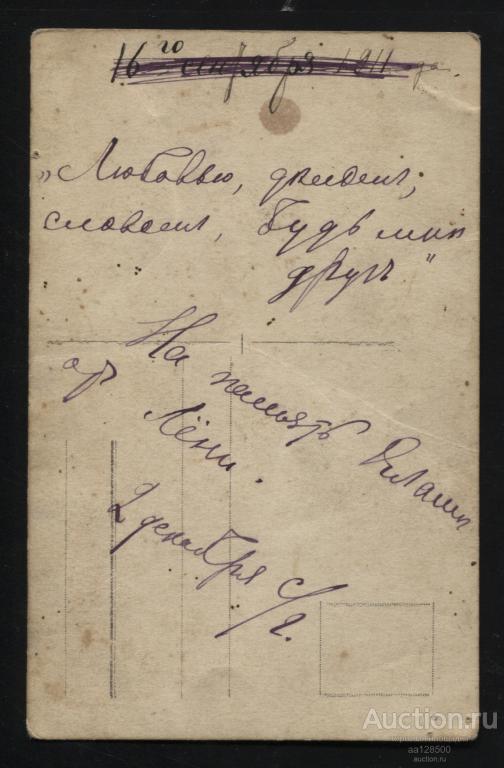 16го сентября 1911 года.
„Любовью, дышем,
словом, будь мне
другъ"
На память
от Лёни.
2 декабря с/г.
Auction.ru
aa128500
auction.ru